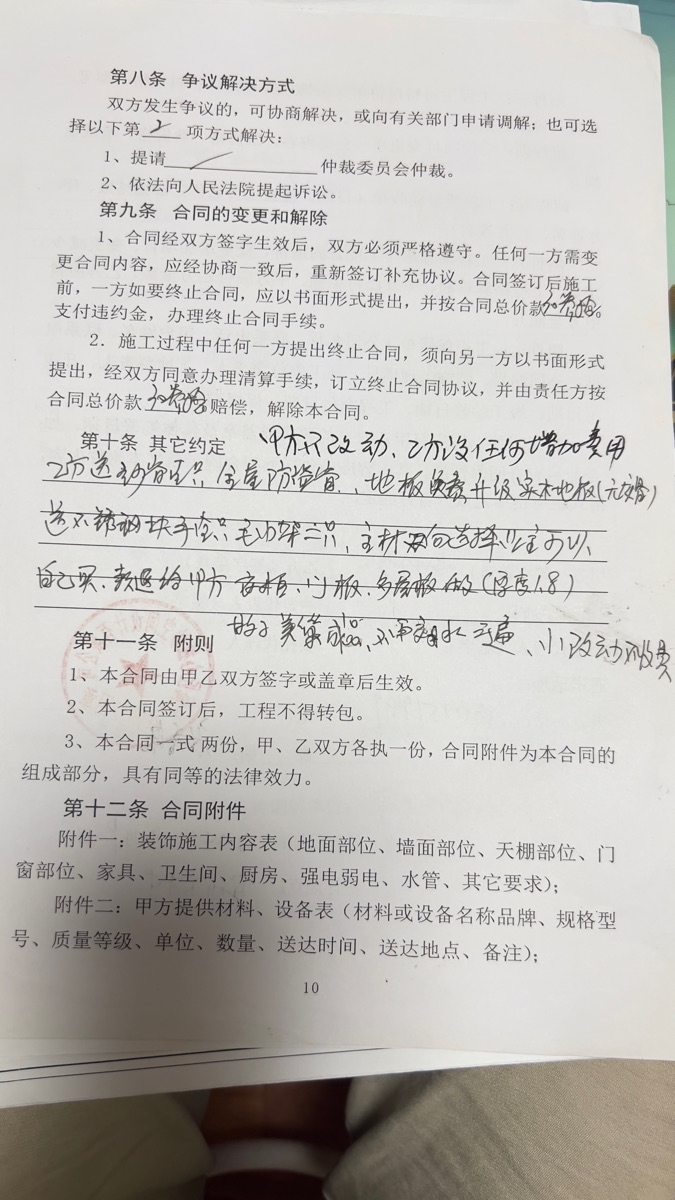 第八条 争议解决方式
双方发生争议的，可协商解决，或向有关部门申请调解；也可选
择以下第 2 项方式解决：
1、提请 / 仲裁委员会仲裁。
2、依法向人民法院提起诉讼。
第九条 合同的变更和解除
1、合同经双方签字生效后，双方必须严格遵守。任何一方需变
更合同内容，应经协商一致后，重新签订补充协议。合同签订后施工
前，一方如要终止合同，应以书面形式提出，并按合同总价款
支付违约金，办理终止合同手续。
2．施工过程中任何一方提出终止合同，须向另一方以书面形式
提出，经双方同意办理清算手续，订立终止合同协议，并由责任方按
合同总价款 赔偿，解除本合同。
第十条 其它约定 甲方不改动、乙方没任何增加费用
乙方送 全屋防 、地板免费升级实木地板
送不锈钢 毛巾架 只、主材 选择 可以
自己买、 退给甲方 门板、多层板 (厚度1.8)
成品、 遍、小改动不收费
第十一条 附则
1、本合同由甲乙双方签字或盖章后生效。
2、本合同签订后，工程不得转包。
3、本合同一式 两份，甲、乙双方各执一份，合同附件为本合同的
组成部分，具有同等的法律效力。
第十二条 合同附件
附件一：装饰施工内容表（地面部位、墙面部位、天棚部位、门
窗部位、家具、卫生间、厨房、强电弱电、水管、其它要求）；
附件二：甲方提供材料、设备表（材料或设备名称品牌、规格型
号、质量等级、单位、数量、送达时间、送达地点、备注）；
10